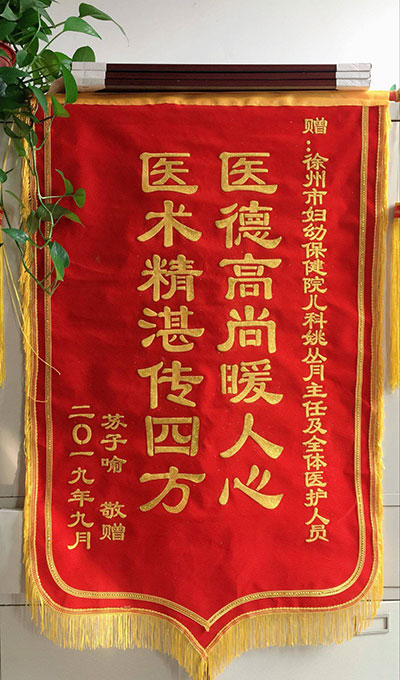 赠：徐州市妇幼保健院儿科姚丛月主任及全体医护人员
医德高尚暖人心
医术精湛传四方
苏子喻 敬赠
二〇一九年九月